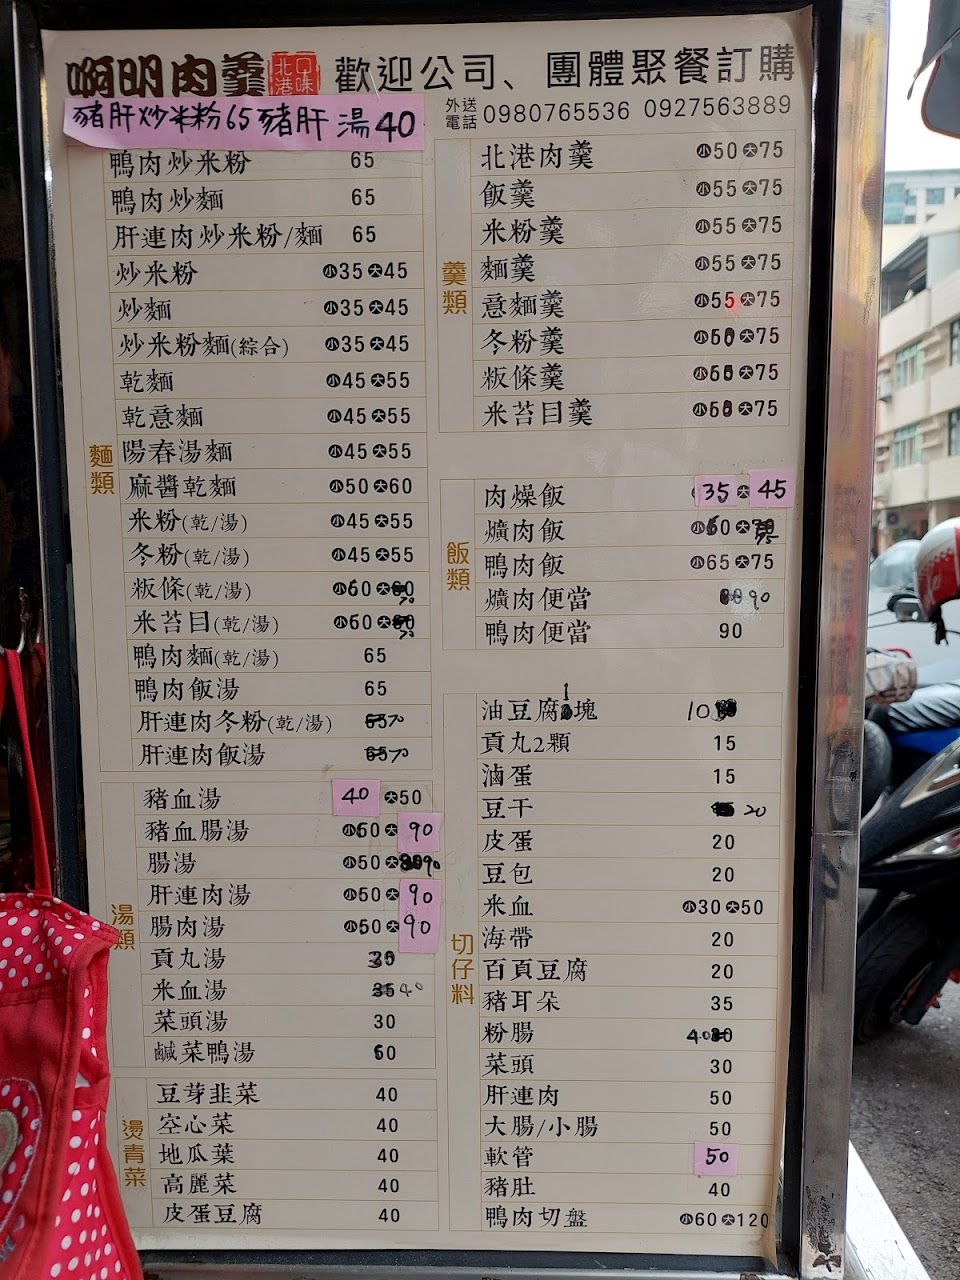 啊明肉羹 北港口味 歡迎公司、團體聚餐訂購
外送電話 0980765536 0927563889
豬肝炒米粉65 豬肝湯40
麵類
鴨肉炒米粉 65
鴨肉炒麵 65
肝連肉炒米粉/麵 65
炒米粉 小35大45
炒麵 小35大45
炒米粉麵(綜合) 小35大45
乾麵 小45大55
乾意麵 小45大55
陽春湯麵 小45大55
麻醬乾麵 小50大60
米粉(乾/湯) 小45大55
冬粉(乾/湯) 小45大55
粄條(乾/湯) 小60大70
米苔目(乾/湯) 小60大70
鴨肉麵(乾/湯) 65
鴨肉飯湯 65
肝連肉冬粉(乾/湯) 65 70
肝連肉飯湯 65 70
湯類
豬血湯 40 大50
豬血腸湯 小60大90
腸湯 小50大90
肝連肉湯 小50大90
腸肉湯 小50大90
貢丸湯
米血湯 35 40
菜頭湯 30
鹹菜鴨湯 60
燙青菜
豆芽韭菜 40
空心菜 40
地瓜葉 40
高麗菜 40
皮蛋豆腐 40
羹類
北港肉羹 小50大75
飯羹 小55大75
米粉羹 小55大75
麵羹 小55大75
意麵羹 小55大75
冬粉羹 小60大75
粄條羹 小60大75
米苔目羹 小60大75
飯類
肉燥飯 35 大45
爌肉飯 小60大75
鴨肉飯 小65大75
爌肉便當 90
鴨肉便當 90
切仔料
油豆腐1塊 10
貢丸2顆 15
滷蛋 15
豆干 20
皮蛋 20
豆包 20
米血 小30大50
海帶 20
百頁豆腐 20
豬耳朵 35
粉腸 40
菜頭 30
肝連肉 50
大腸/小腸 50
軟管 50
豬肚 40
鴨肉切盤 小60大120